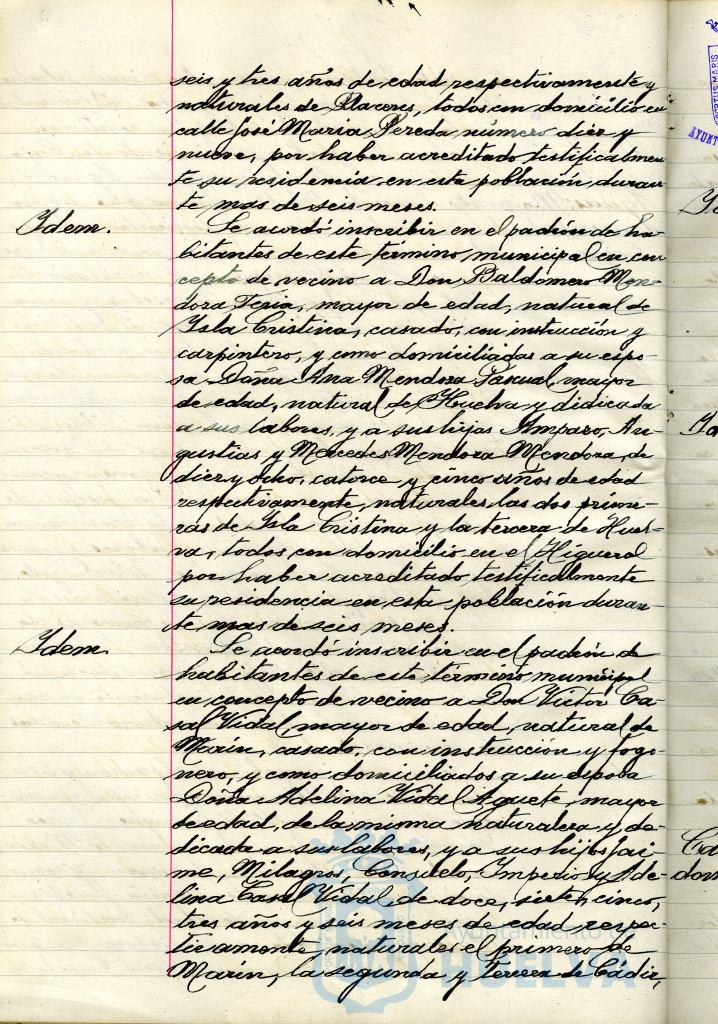 seis y tres años de edad respectivamente y
naturales de Placeres, todos con domicilio en
calle José Maria Pereda número diez y
nueve, por haber acreditado testificalmen
te su residencia en esta población duran
te mas de seis meses.
Idem.
Se acordó inscribir en el padrón de ha-
bitantes de este término municipal en con
cepto de vecino a Don Baldomero Men-
doza Feria, mayor de edad, natural de
Isla Cristina, casado, con instrucción y
carpintero, y como domiciliadas a su espo-
sa Doña Ana Mendoza Pascual, mayor
de edad, natural de Huelva y didicada
a sus labores, y a sus hijas Amparo, An-
gustias y Mercedes Mendoza Mendoza, de
diez y ocho, catorce y cinco años de edad
respectivamente, naturales las dos prime-
ras de Isla Cristina y la tercera de Huel-
va, todos con domicilio en el Higueral
por haber acreditado testificalmente
su residencia en esta población duran-
te mas de seis meses.
Idem.
Se acordó inscribir en el padrón de
habitantes de este término municipal
en concepto de vecino a Don Victor Ca-
sal Vidal, mayor de edad, natural de
Marin, casado, con instrucción y fogo-
nero, y como domiciliados a su esposa
Doña Adelina Vidal Aguete, mayor
de edad, de la misma naturaleza y de-
dicada a sus labores, y a sus hijos Jai-
me, Milagros, Consuelo, Imperio y Ade-
lina Casal Vidal, de doce, siete, cinco,
tres años y seis meses de edad respec-
tivamente, naturales el primero de
Marin, la segunda y tercera de Cádiz,
Ayuntamiento de
HUELVA